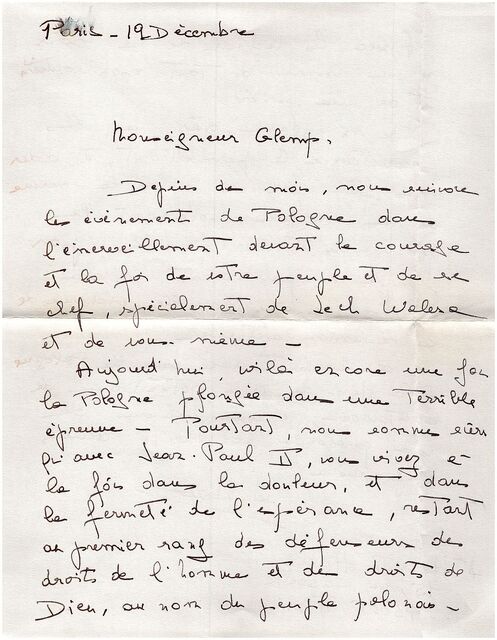 Paris - 19 Décembre
Monseigneur Glemp,
Depuis des mois, nous suivons
les événements de Pologne dans
l'émerveillement devant le courage
et la foi de votre peuple et de ses
chefs, spécialement de Lech Walesa
et de vous-même -
Aujourd'hui, voilà encore une fois
la Pologne plongée dans une terrible
épreuve - Pourtant, nous sommes sûrs
qu'avec Jean-Paul II, vous vivez à
la fois dans la douleur, et dans
la fermeté de l'espérance, restant
au premier rang des défenseurs des
droits de l'homme et des droits de
Dieu, au nom du peuple polonais -